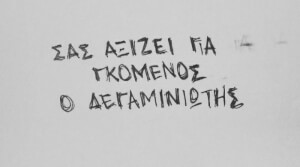 ΣΑΣ ΑΞΙΖΕΙ ΓΙΑ
ΓΚΟΜΕΝΟΣ
Ο ΔΕΓΑΜΙΝΙΩΤΗΣ